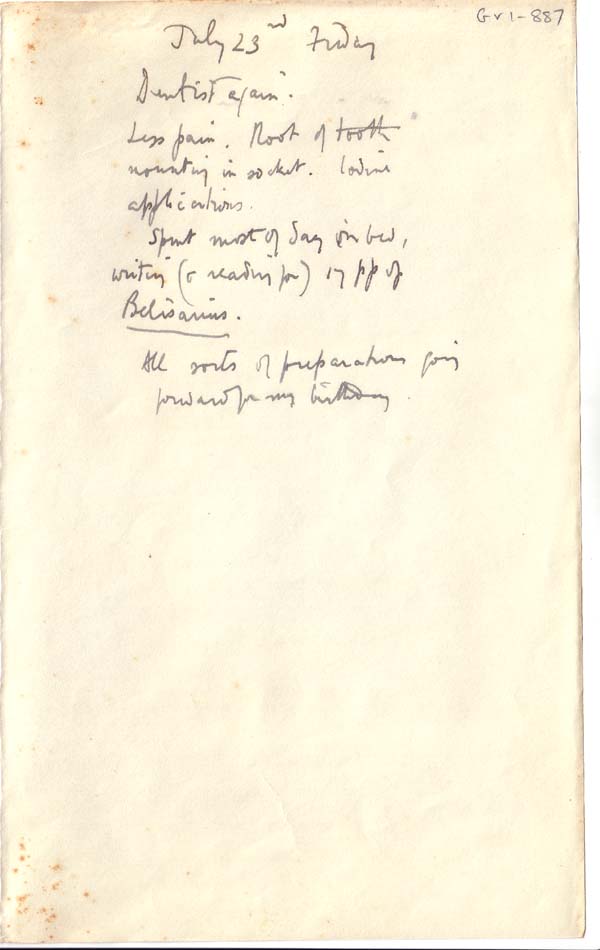 GV1-887
July 23rd Friday
Dentist again.
Less pain. Root of tooth
mounting in socket. Iodine
applications.
Spent most of day in bed,
writing (& reading for) 17 pp of
Belisarius.
All sorts of preparations going
forward for my birthday.